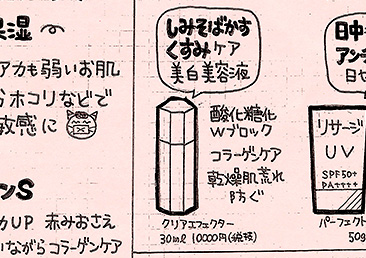 保湿
アカも弱いお肌
ホコリなどで
敏感に
ンS
カUP 赤みおさえ
いながらコラーゲンケア
しみそばかす
くすみケア
美白美容液
酸化糖化
Wブロック
コラーゲンケア
乾燥肌荒れ
防ぐ
クリアエフェクター
30ml 10000円(税抜)
日中
アンチ
日や
リサージ
UV
SPF50+
PA++++
パーフェクト
50g